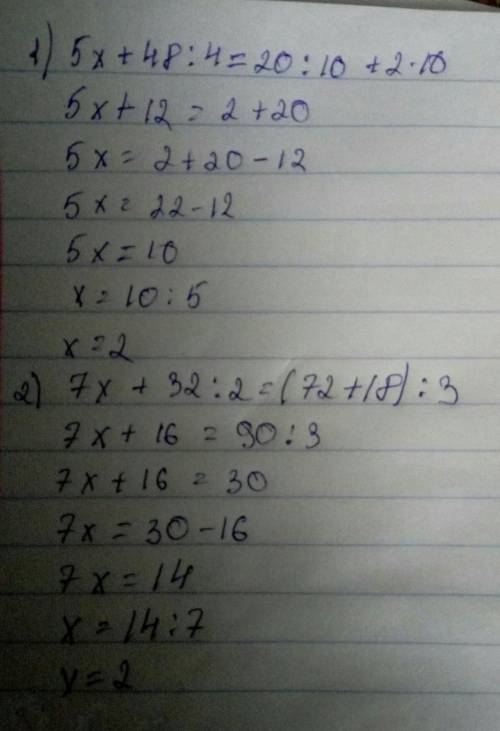 1) 5x + 48 : 4 = 20 : 10 + 2 · 10
5x + 12 = 2 + 20
5x = 2 + 20 - 12
5x = 22 - 12
5x = 10
x = 10 : 5
x = 2
2) 7x + 32 : 2 = (72 + 18) : 3
7x + 16 = 90 : 3
7x + 16 = 30
7x = 30 - 16
7x = 14
x = 14 : 7
x = 2